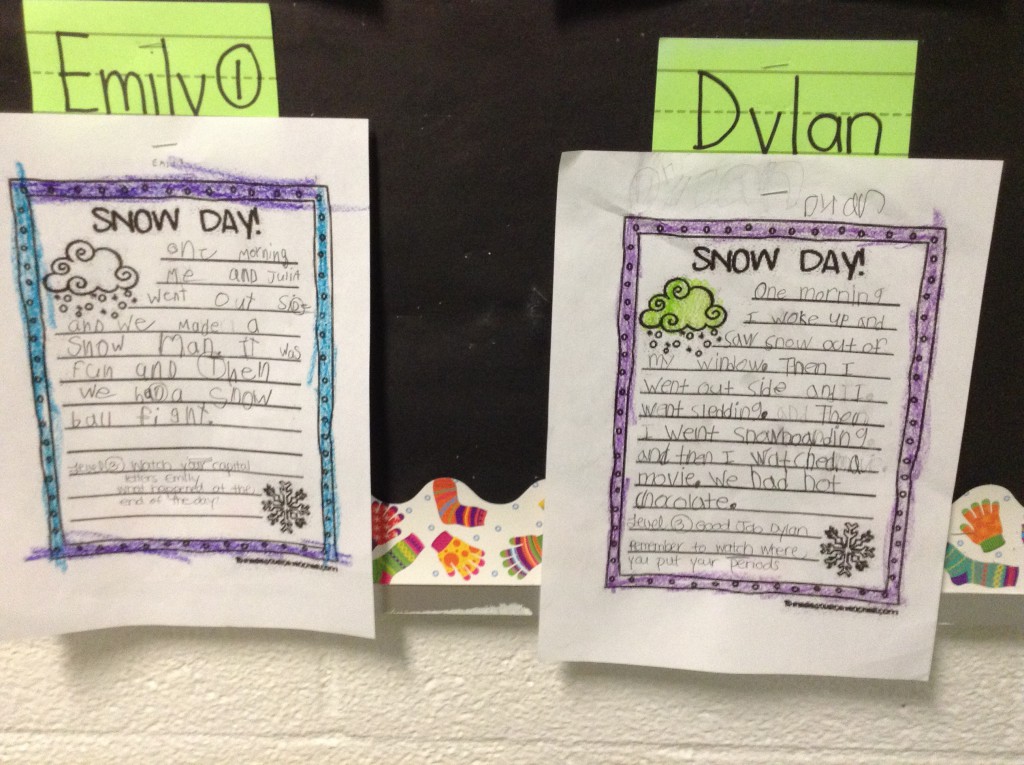 Emily ①
SNOW DAY!
one morning
me and Julia
went out side
and we made a
Snow Man. It was
fun and Then
we had a Snow
ball fight.
Level ② Watch your capital
letters Emily
What happened at the
end of the day!
Dylan
Dylan
SNOW DAY!
One morning
I woke up and
saw snow out of
my window. Then I
went out side and I
went sledding. Then
I went snowboarding.
and then I watched a
movie. We had hot
chocolate.
Level ③ Good Job Dylan
Remember to watch where
you put your periods